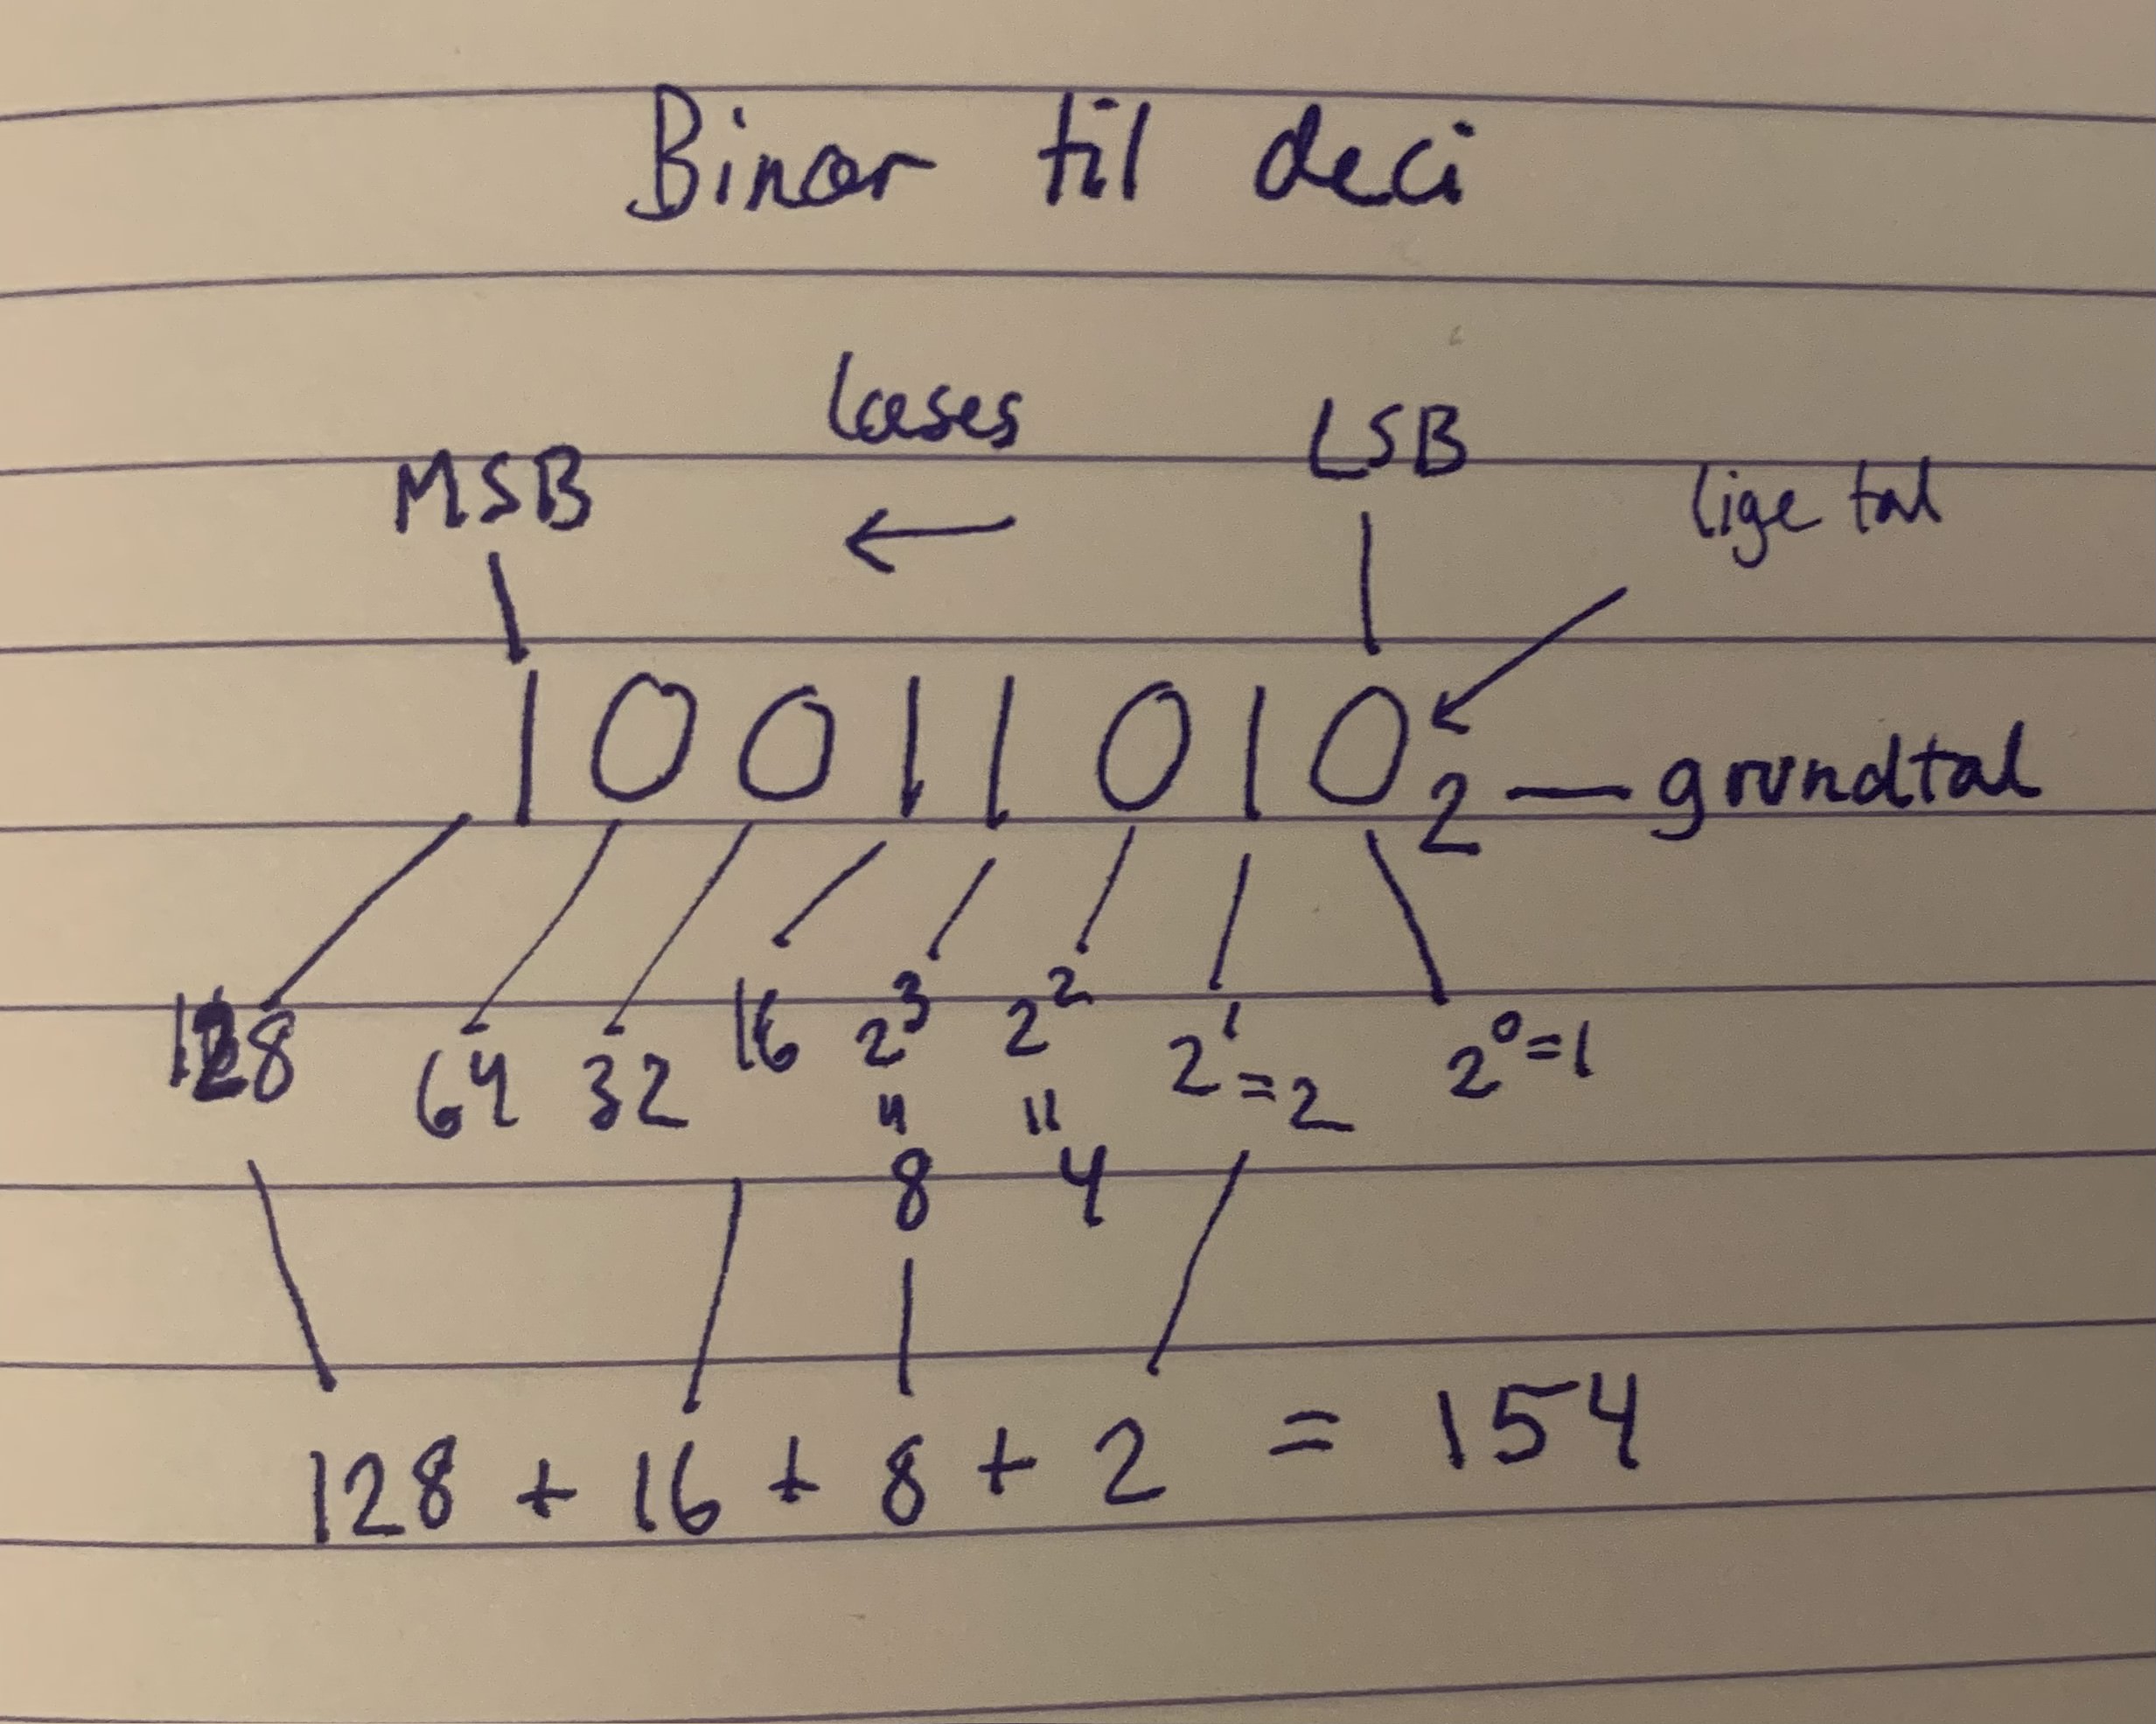 Binær til deci
læses
MSB ← LSB lige tal
10011010₂ — grundtal
128 64 32 16 2³ 2² 2¹=2 2⁰=1
" 8 " 4
128 + 16 + 8 + 2 = 154